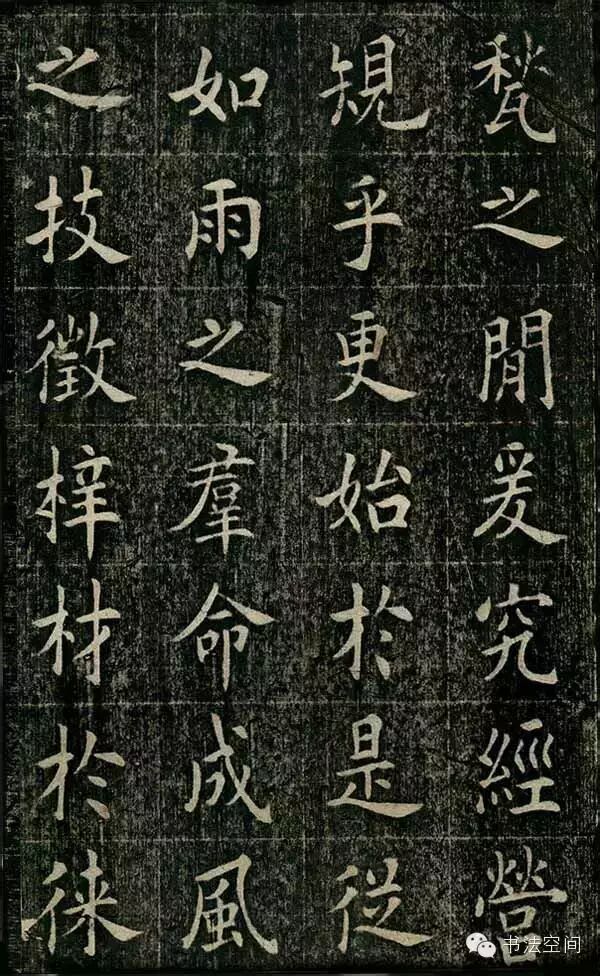 甃之閒爰究經營
規乎更始於是從
如雨之羣命成風
之技徵梓材於徠
书法空间